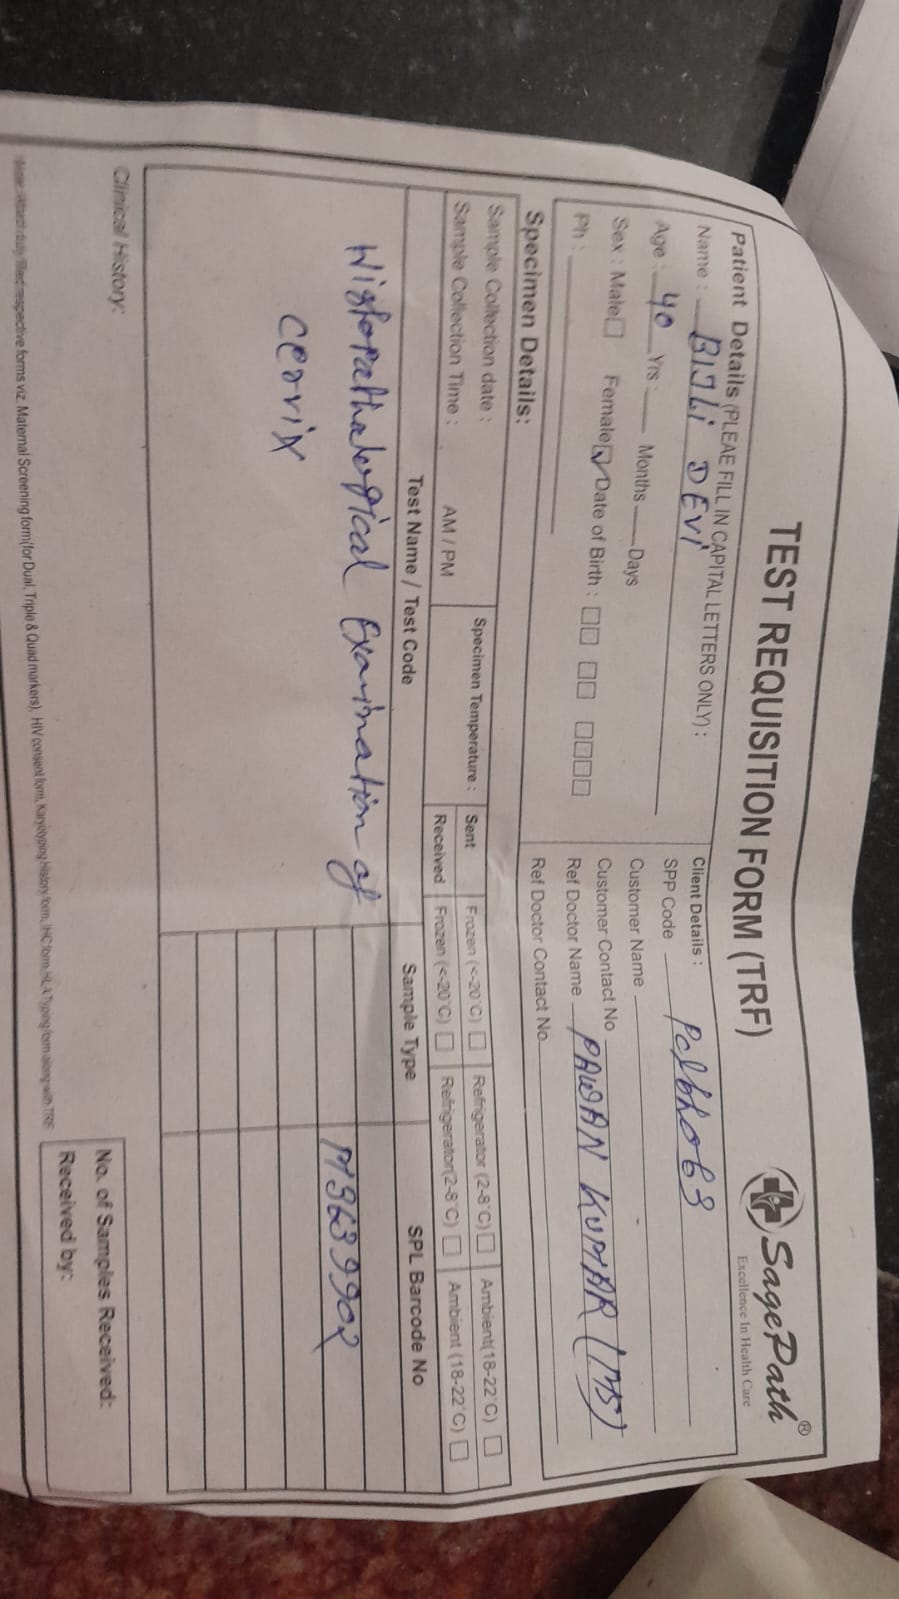 TEST REQUISITION FORM (TRF)
SagePath®
Excellence In Health Care
Patient Details (PLEAE FILL IN CAPITAL LETTERS ONLY) :
Name : BIJLI DEVI
Age : 40 Yrs : Months Days
Sex : Male☐ Female☑ Date of Birth : ☐☐ ☐☐ ☐☐☐☐
Ph :
Client Details :
SPP Code
Customer Name
Customer Contact No
Ref Doctor Name PAWAN KUMAR
Ref Doctor Contact No
Specimen Details:
Sample Collection date :
Sample Collection Time : AM / PM
Specimen Temperature :
Sent Frozen (<-20°C) ☐ Refrigerator (2-8°C) ☐ Ambient(18-22°C) ☐
Received Frozen (<-20°C) ☐ Refrigerator(2-8°C) ☐ Ambient (18-22°C) ☐
Test Name / Test Code Sample Type SPL Barcode No
Histopathalogical Examination of
Cervix
Clinical History:
No. of Samples Received:
Received by:
respective forms viz. Maternal Screening form(for Dual, Triple & Quad markers), HIV consent form, Karyotyping History form, IHC form, HLA Typing form along with TRF